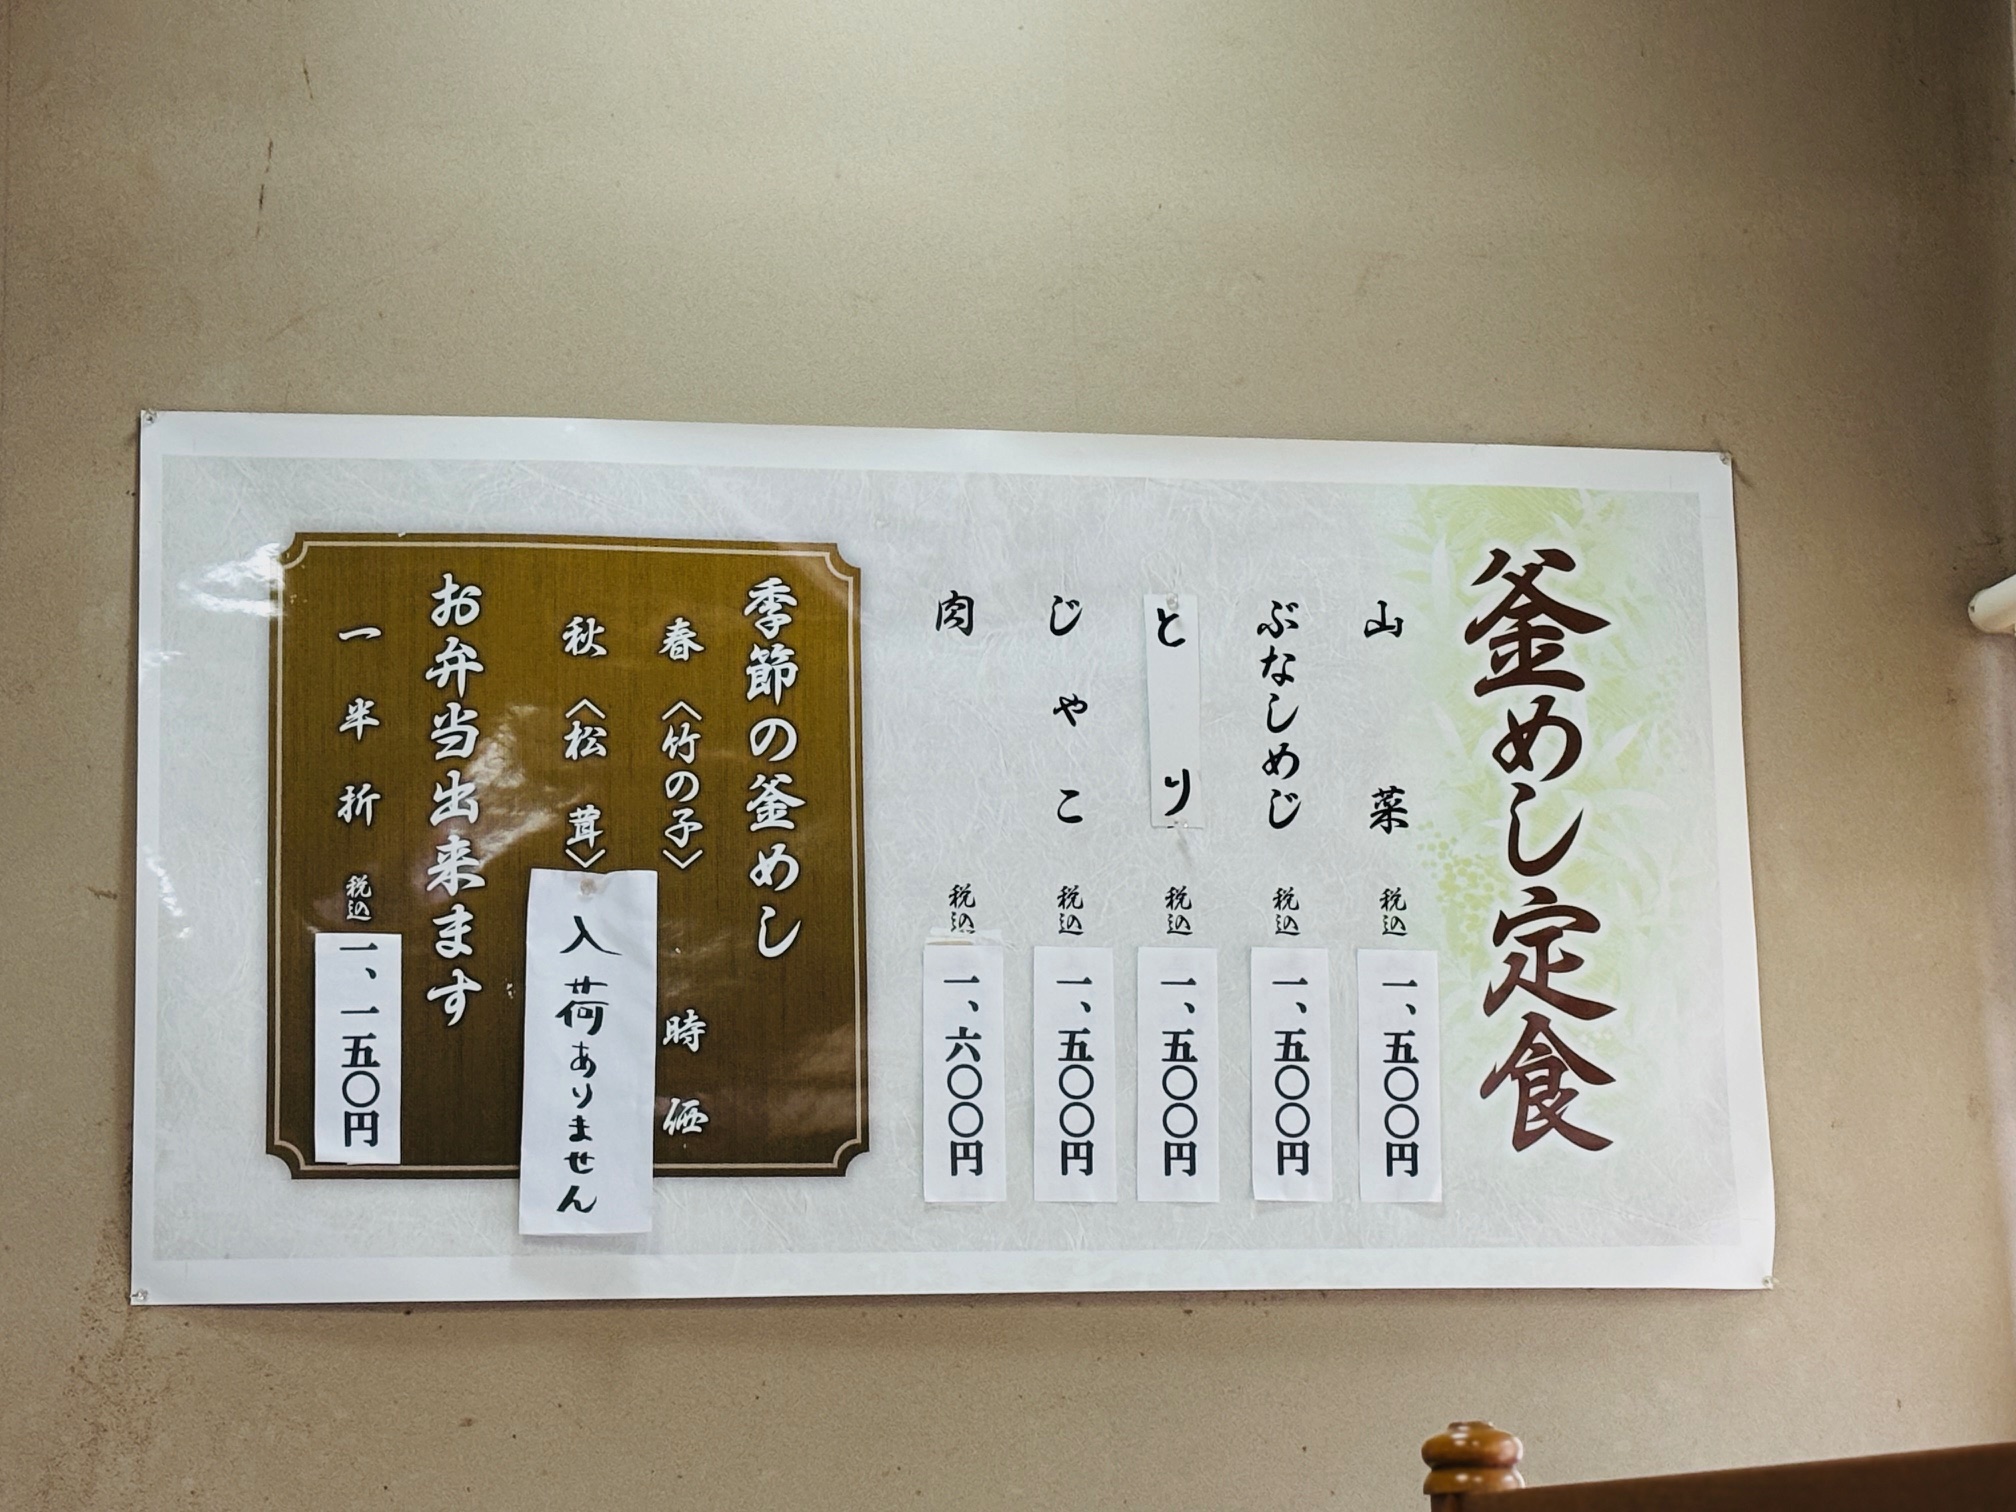 釜めし定食
山菜 税込 一、五〇〇円
ぶなしめじ 税込 一、五〇〇円
とり 税込 一、五〇〇円
じゃこ 税込 一、五〇〇円
肉 税込 一、六〇〇円
季節の釜めし
春〈竹の子〉 時価
秋〈松茸〉 入荷ありません
お弁当出来ます
一半折 税込 一、一五〇円